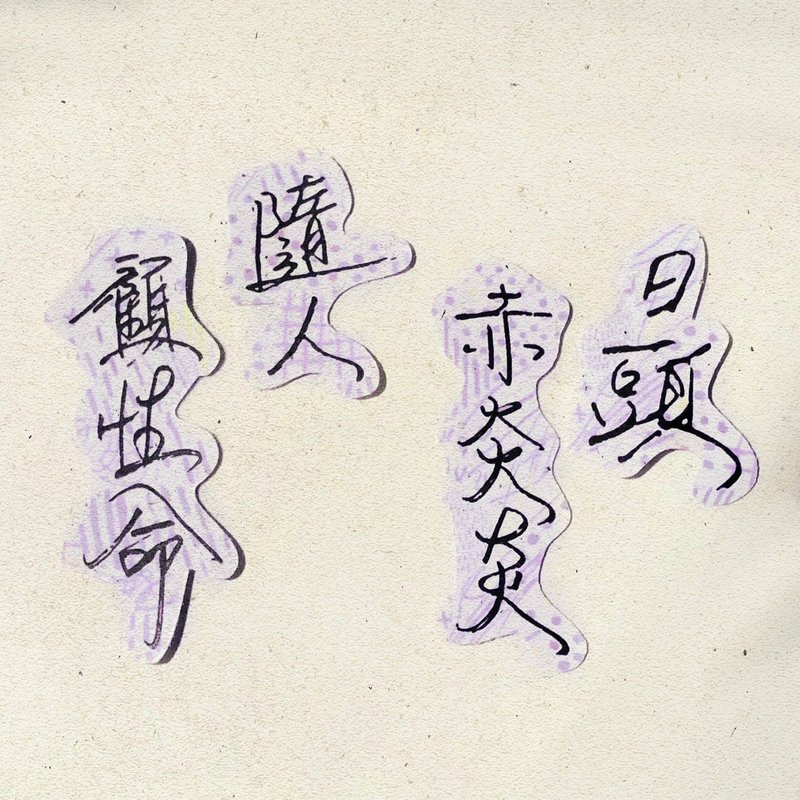 日頭
赤炎炎
隨人
顧性命